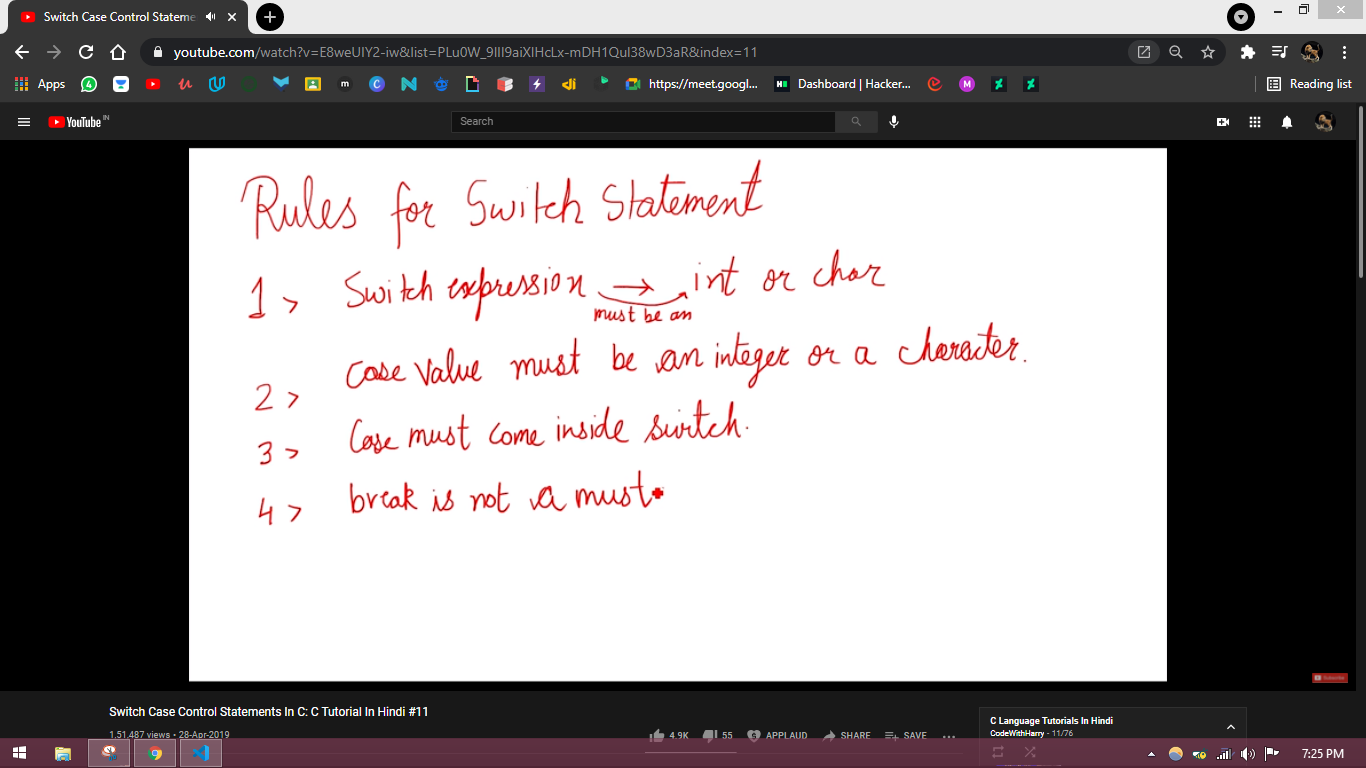 Switch Case Control Stateme
youtube.com/watch?v=E8weUIY2-iw&list=PLu0W_9lII9aiXlHcLx-mDH1Qul38wD3aR&index=11
Apps
https://meet.googl...
Dashboard | Hacker...
Reading list
YouTube IN
Search
Rules for Switch Statement
1> Switch expression → int or char
must be an
2> Case value must be an integer or a character.
3> Case must come inside switch.
4> break is not a must
Subscribe
Switch Case Control Statements In C: C Tutorial In Hindi #11
1,51,487 views • 28-Apr-2019
4.9K
55
APPLAUD
SHARE
SAVE
C Language Tutorials In Hindi
CodeWithHarry - 11/76
7:25 PM